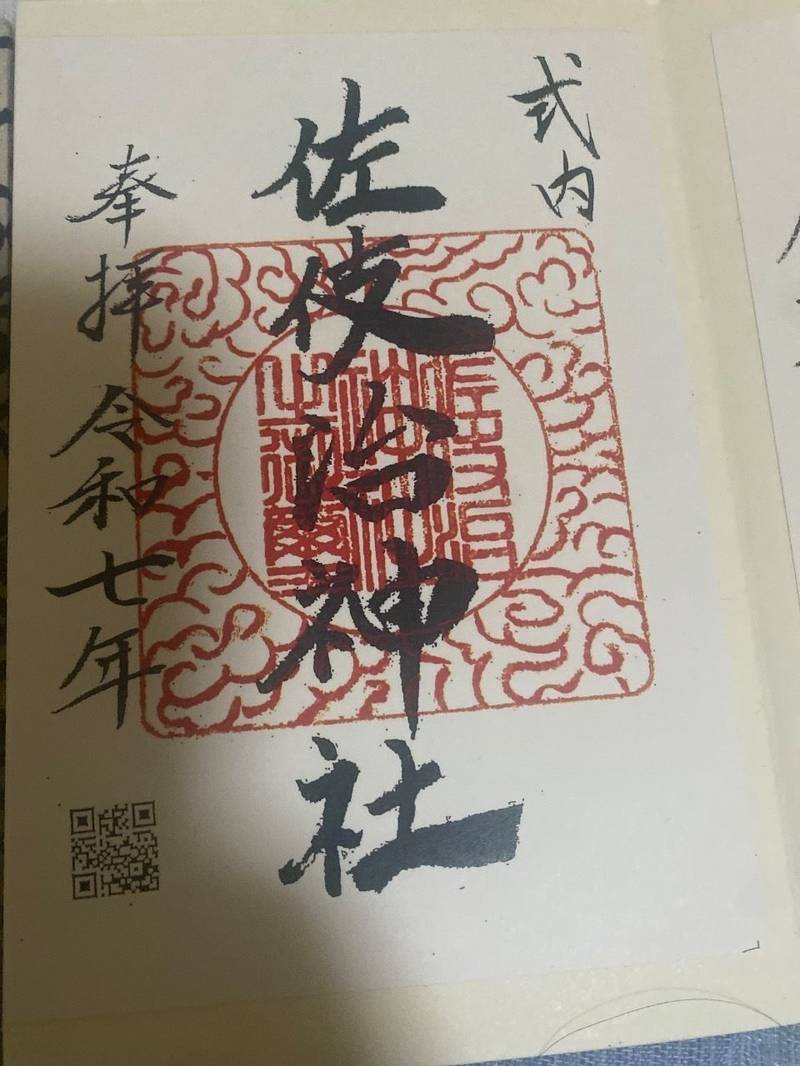 式内
佐伎治神社
奉拝 令和七年